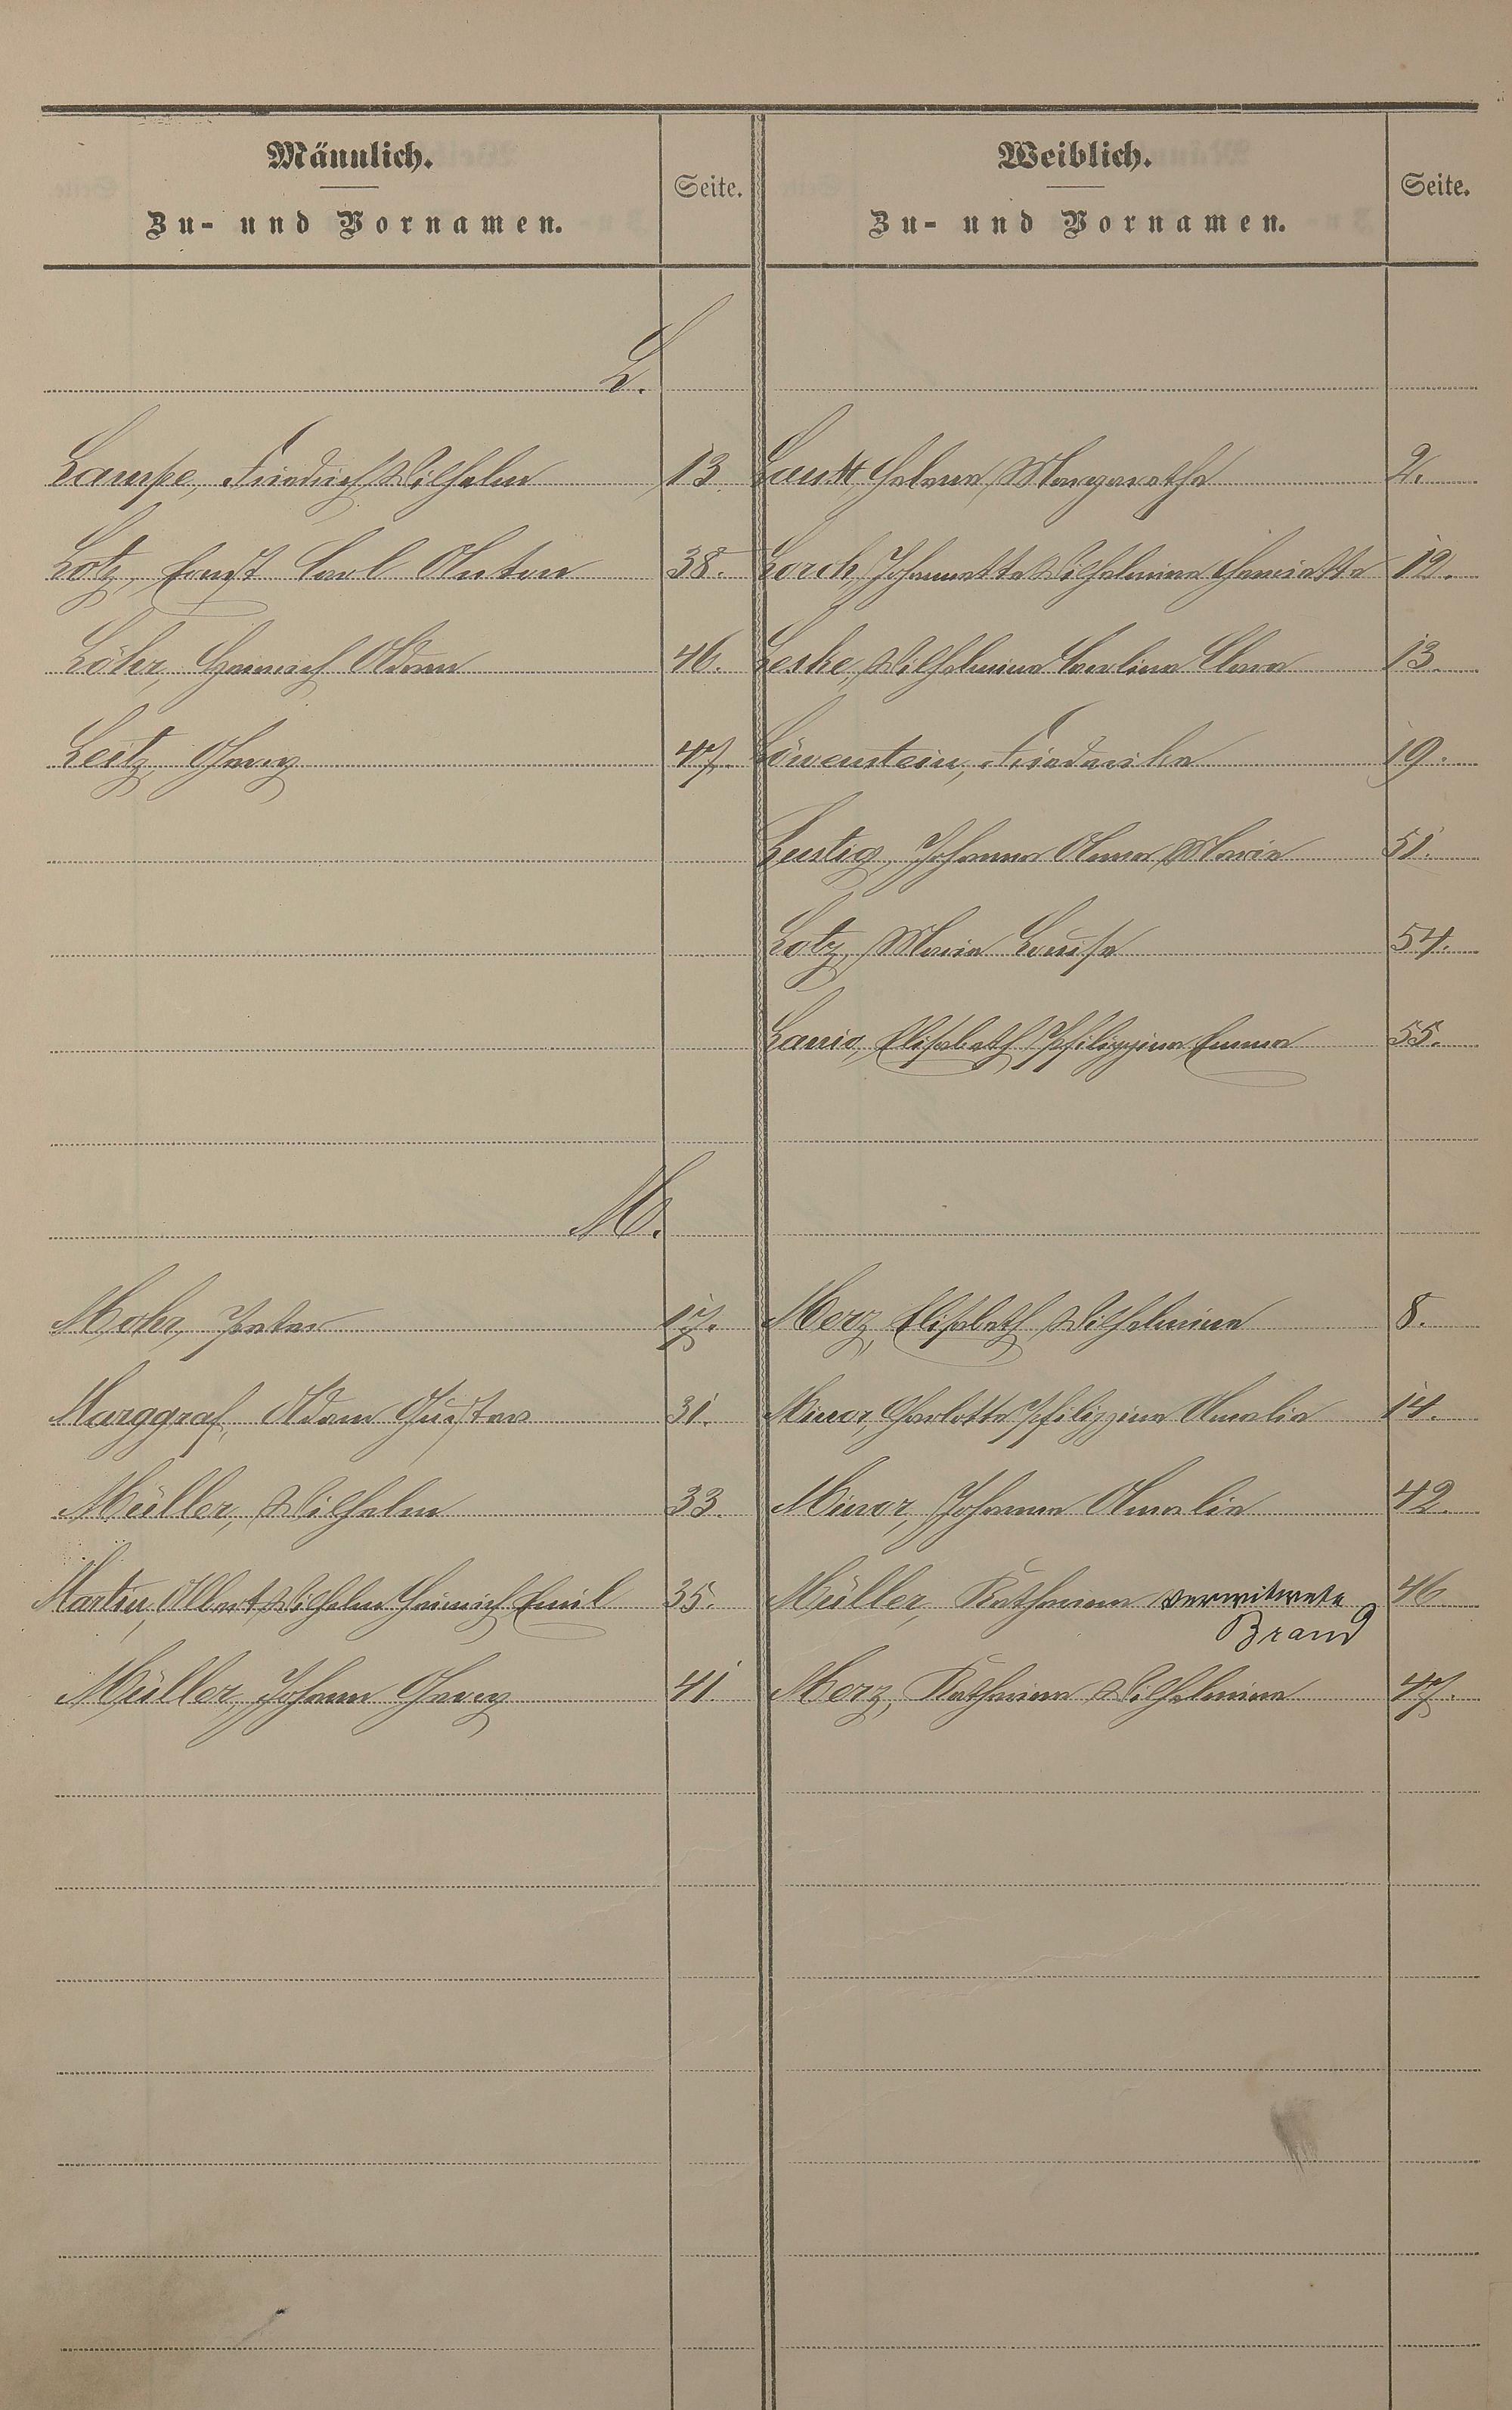 Männlich.
Zu- und Vornamen.
Seite.
Weiblich.
Zu- und Vornamen.
Seite.
L.
Lampe, Friedrich Wilhelm 13. Helene Margarethe 2.
Lotz, Ernst Carl Anton 38. Lorch, Johannette Wilhelmine Henriette 12.
Löhr, Heinrich Adam 46. Leske, Wilhelmine Caroline Clara 13.
Leitz, Georg 47. Löwenstein, Friederike 19.
Lustig, Johanna Anna Maria 51.
Lotz, Marie Louise 54.
Lanio, Elisabeth Philippine Emma 55.
M.
Mohr, Peter 17. Merz, Elisabeth Wilhelmine 8.
Marggraf, Adam Gustav 31. Minor, Charlotte Philippine Amalie 14.
Müller, Wilhelm 33. Minor, Johanna Amalie 42.
Martin, Albert Wilhelm Heinrich Emil 35. Müller, Katharina verwitwete 46.
Brand
Müller, Johann Georg 41. Merz, Katharina Wilhelmine 47.